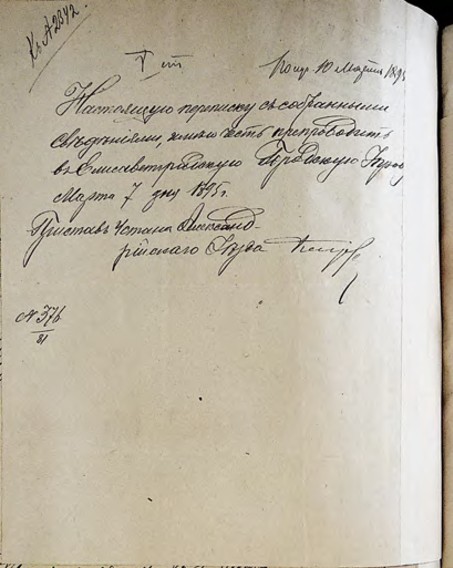 Къ № 2342.
V ст
10 Марта 1895
Настоящую переписку съ собранными
свѣдѣніями, имѣю честь препроводить
въ Елисаветградскую Городскую Управу
Марта 7 дня 1895 г.
Приставъ 4 стана Александ-
рійскаго Уѣзда
№ 376